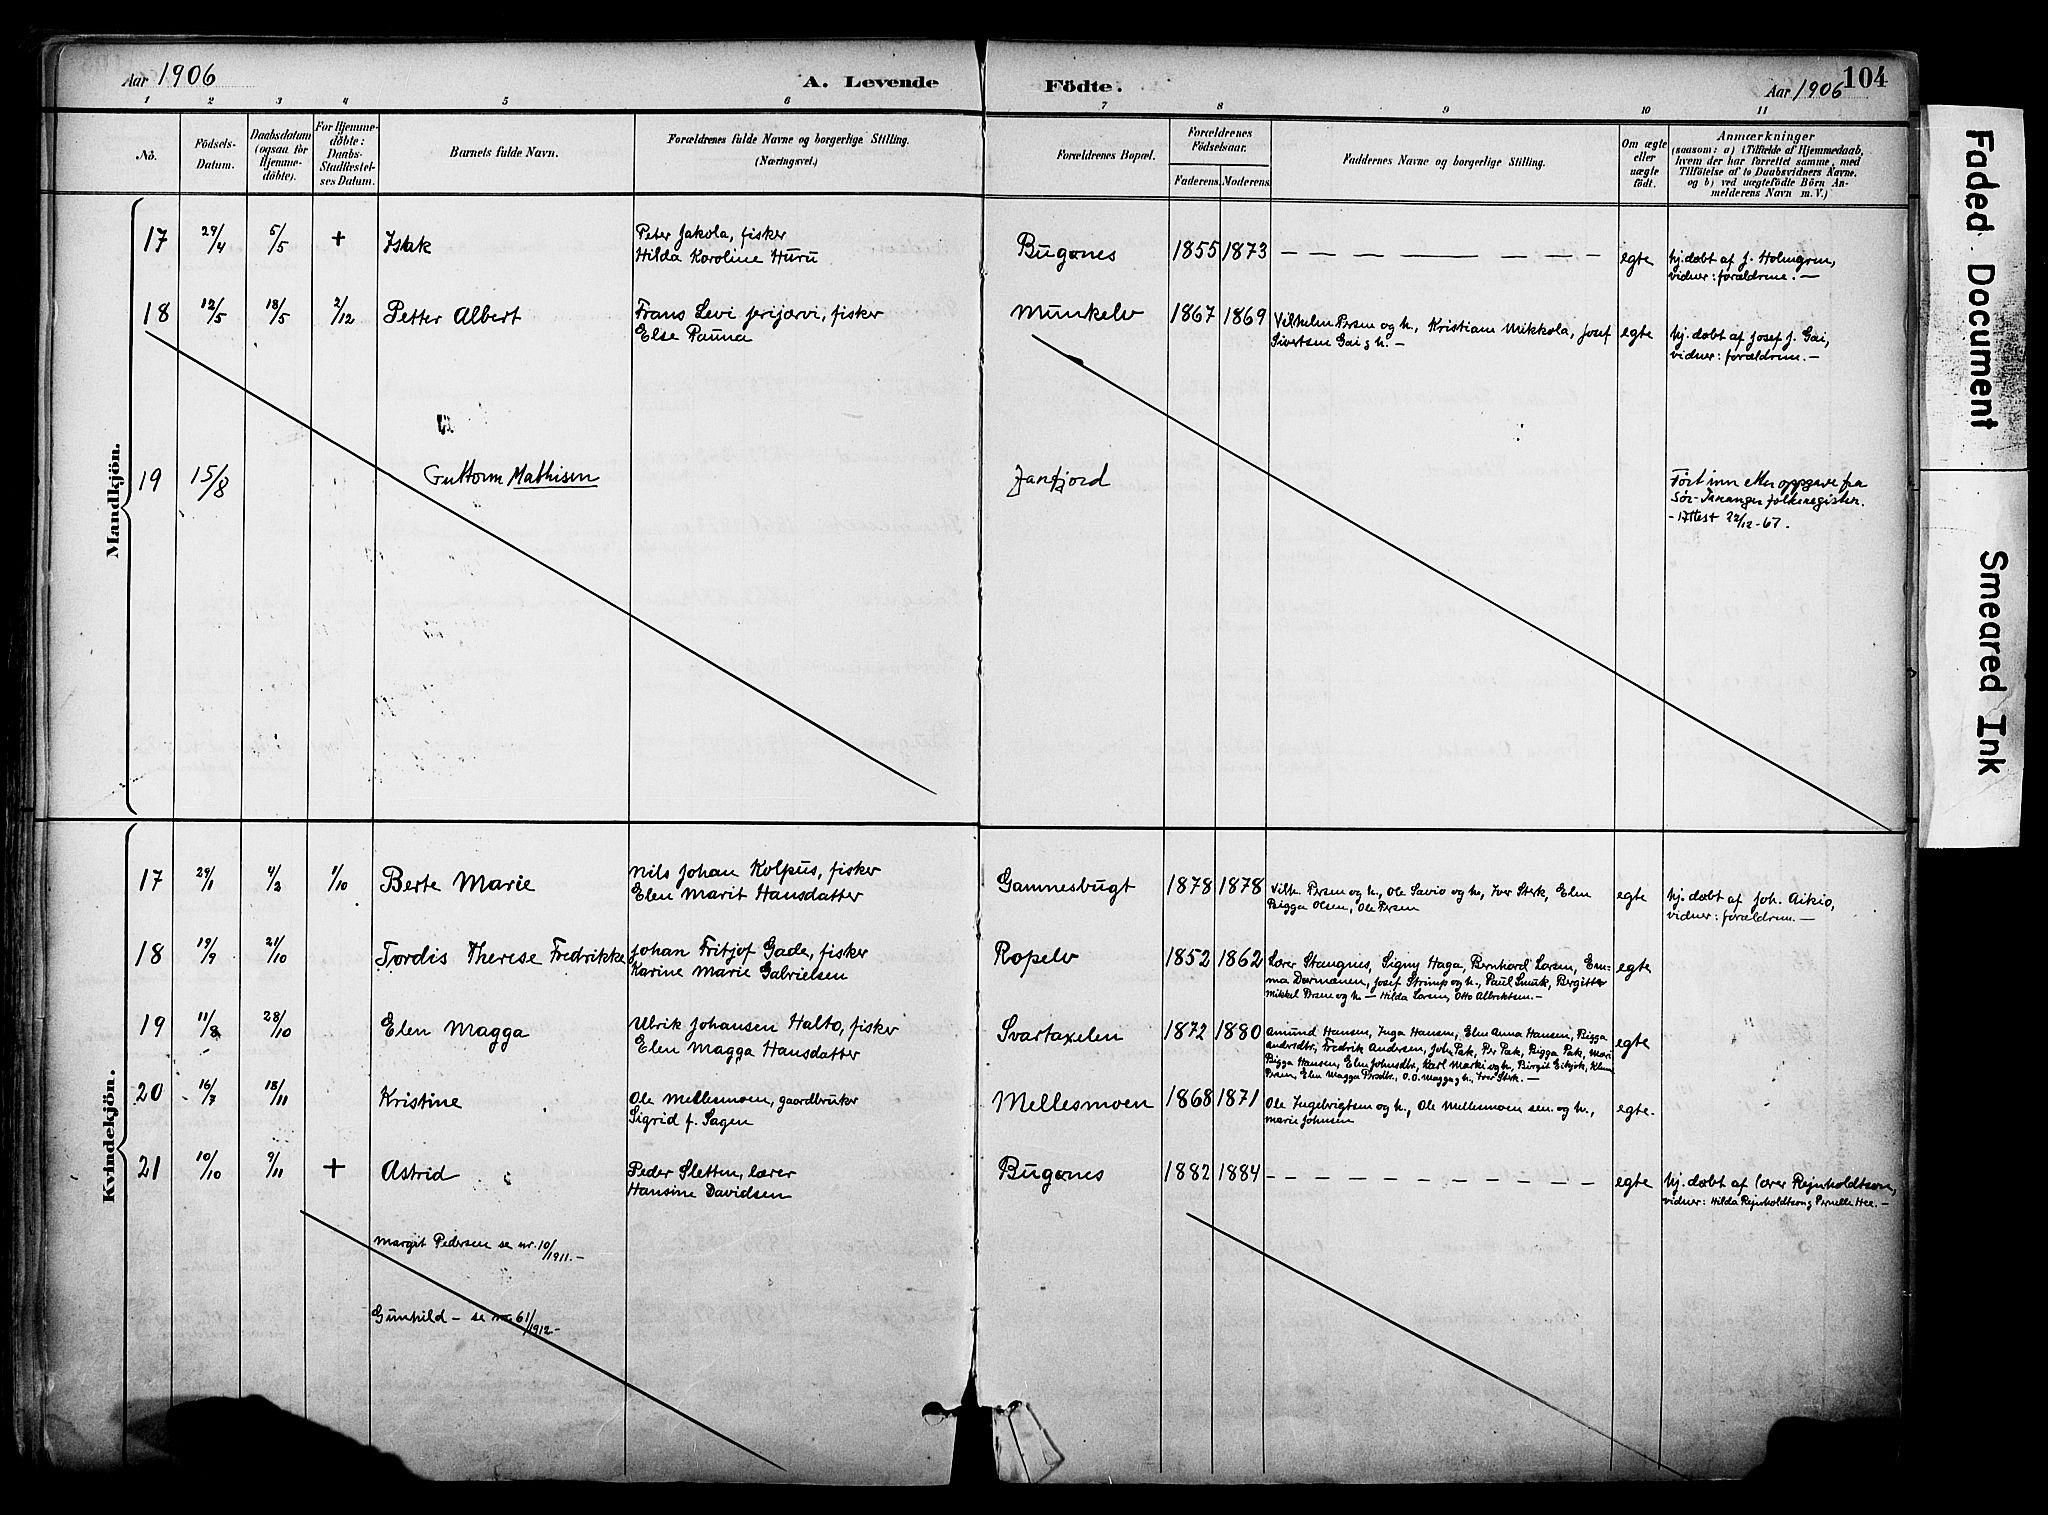 Aar 1906
A. Levende
Födte.
Aar 1906
104
1 2 3 4 5 6 7 8 9 10 11
No.
Födsels-
Datum.
Daabsdatum
(ogsaa for
Hjemme-
döbte).
For Hjemme-
döbte:
Daabs-
Stadfæstel-
ses Datum.
Barnets fulde Navn.
Forældrenes fulde Navne og borgerlige Stilling.
(Næringsvei.)
Forældrenes Bopæl.
Forældrenes
Födselsaar.
Faderens. Moderens.
Faddernes Navne og borgerlige Stilling.
Om ægte
eller
uægte
födt.
Anmærkninger
(saasom: a) i Tilfælde af Hjemmedaab,
hvem der har forrettet samme, med
Tilföielse af to Daabsvidners Navne,
og b) ved uægtefödte Börn An-
melderens Navn m. V.)
Mandkjön.
17 29/4 5/5 + Isak
Peter Jakola, fisker
Hilda Karoline Huru
Bugønes 1855 1873 — — — — — — — — egte
hj. døbt af J. Holmgren,
vidner: forældrene. —
18 12/5 13/5 2/12 Petter Albert
Frans Levi Jerijærvi, fisker
Else Pauna
Munkelv 1867 1869
Vilhelm Persen og h., Kristian Mikkola, Josef
Sivertsen Gai og h. —
egte
hj. døbt af Josef J. Gai,
vidner: forældrene. —
19 15/8 Guttorm Mathisen
Jarfjord
Ført inn etter oppgave fra
Sør-Varanger folkeregister.
- Attest 22/12-67.
Kvindekjön.
17 29/1 4/2 1/10 Berte Marie
Nils Johan Kolpus, fisker
Elen Marit Hansdatter
Gamnesbugt 1878 1878
Vilh. Persen og h., Ole Savio og h., Iver Sterk, Elen
Bigga Olsen, Ole Persen
egte
hj. døbt af Joh. Aikio,
vidner: forældrene. —
18 19/9 21/10 Tordis Therese Fredrikke
Johan Fritjof Gade, fisker
Karine Marie Gabrielsen
Ropelv 1852 1862
Lærer Stangnes, Signy Haga, Bernhard Larsen, Em-
ma Dørmænen, Josef Strimp og h., Paul Smuk, Bergitte
Mikkel Persen og h. — Hilda Larsen, Otto Albriktsen. —
egte
19 11/8 28/10 Elen Magga
Ulrik Johansen Halto, fisker
Elen Magga Hansdatter
Svartaxelen 1872 1880
Amund Hansen, Inga Hansen, Elen Anna Hansen, Bigga
Andersdtr, Fredrik Andersen, John Pak, Per Pak, Bigga Pak, Mari
Bigga Hansen, Elen Johnsdtr, Karl Marki og h., Birgit Eikjok, Klem
Persen, Elen Magga Persdtr., O.O. Magga og h., Iver Sterk. —
egte
20 16/7 18/11 Kristine
Ole Mellesmoen, gaardbruker
Sigrid f. Sagen
Mellesmoen 1868 1871
Ole Ingebrigtsen og h., Ole Mellesmoen sen. og h.,
Marie Johnsen
egte.
21 10/10 9/11 + Astrid
Peder Sletten, lærer
Hansine Davidsen
Bugønes 1882 1884 — — — — — — — — — — — egte
hj. døbt af lærer Rejnholdtsen,
vidner: Hilda Rejnholdtsen og Pernelle Hee. —
Margit Pedersen se nr. 10/1911. —
Gunhild — se nr. 61/1912 —
Faded Document
Smeared Ink